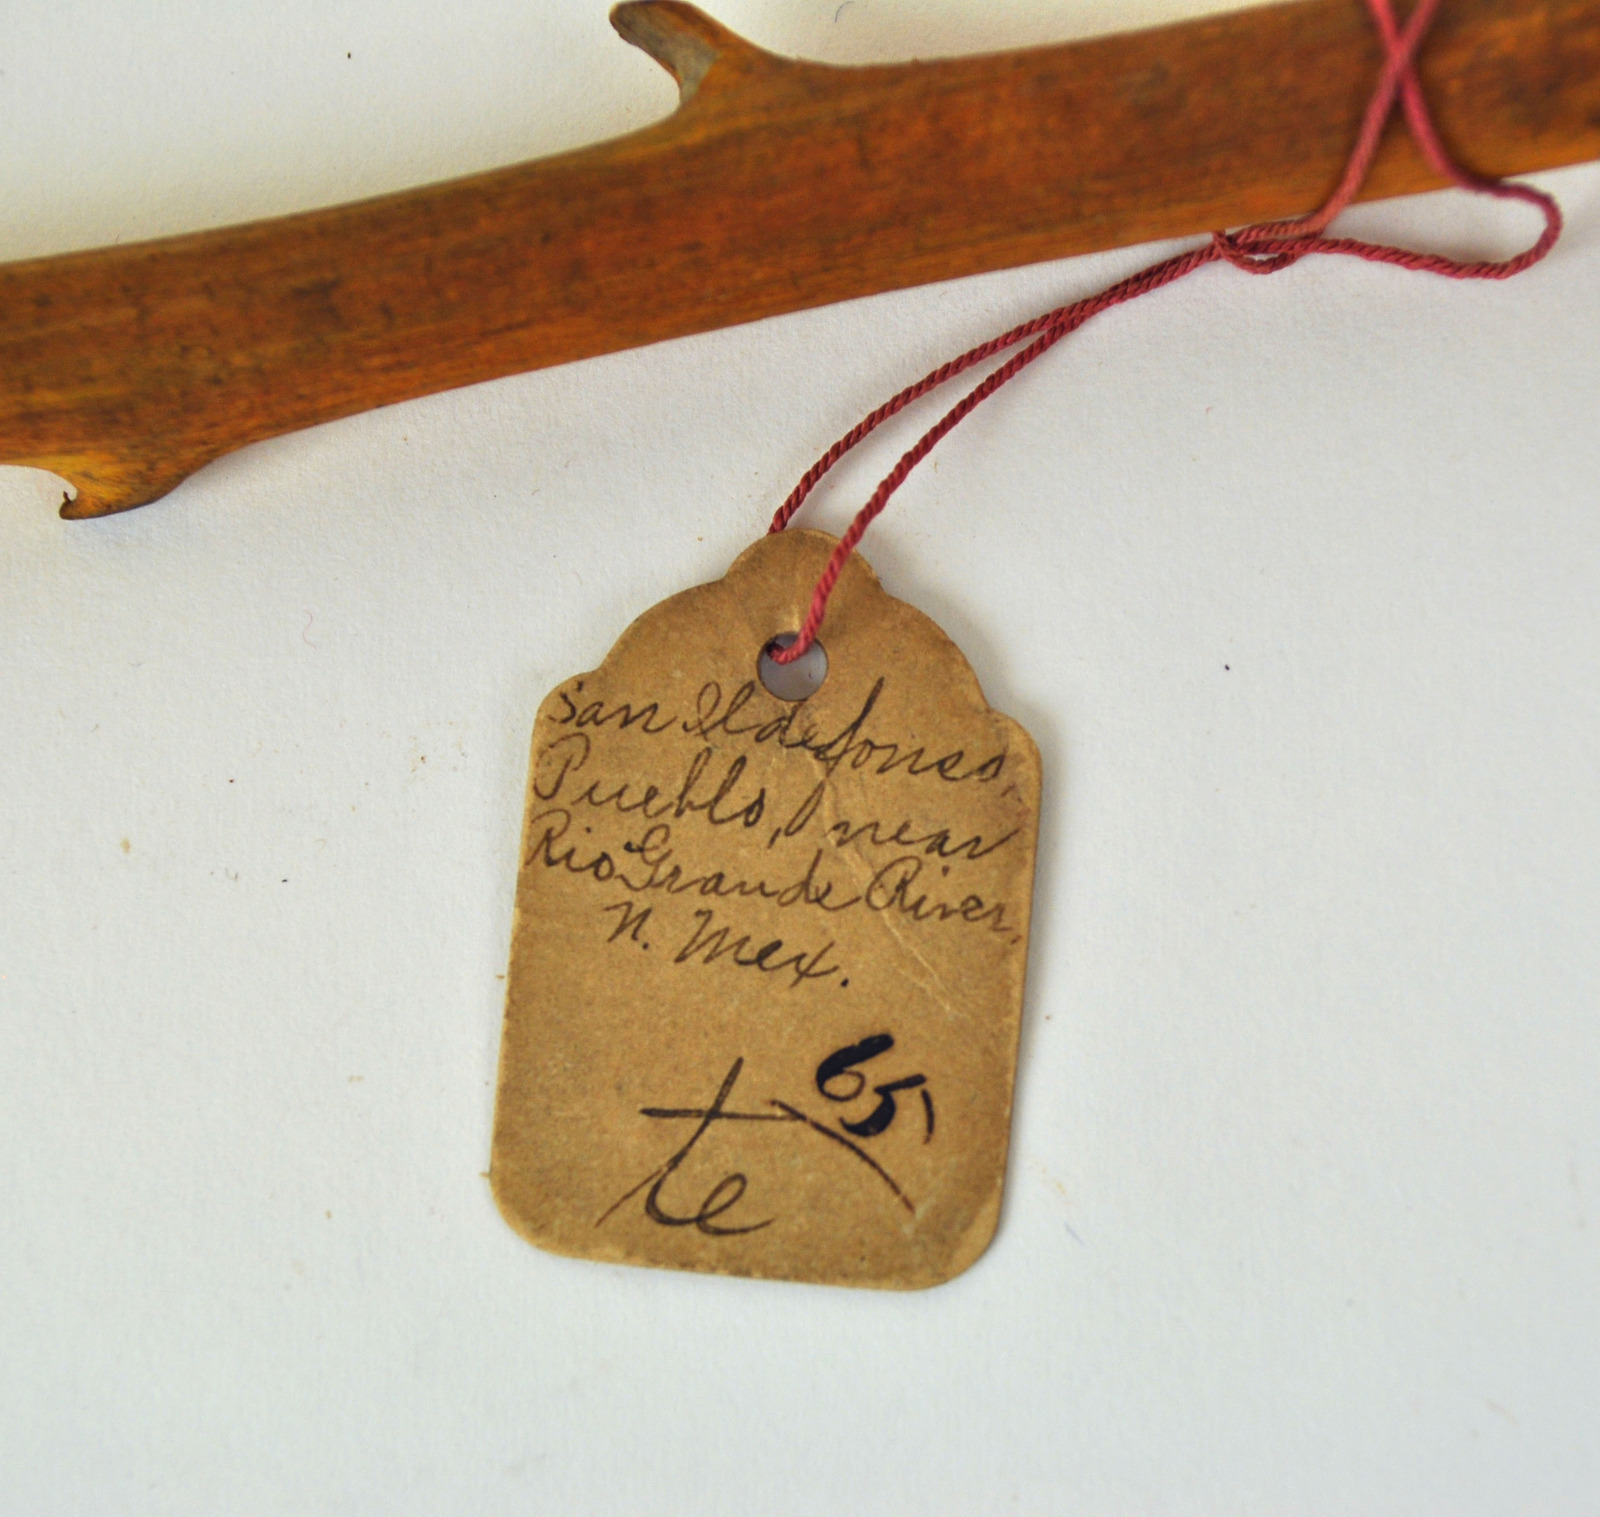 San Ildefonso,
Pueblo, near
Rio Grande River,
N. Mex.
65
te